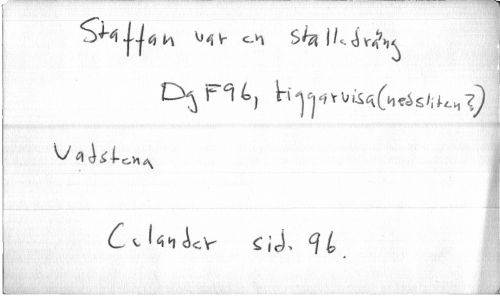 Staffan var en stalledräng
DgF96, tiggarvisa(nedsliten?)
Vadstena
Celander sid. 96.